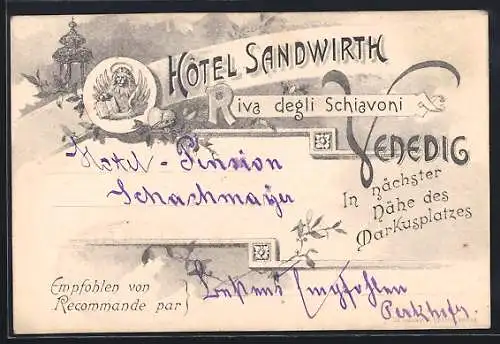 HÔTEL SANDWIRTH
Riva degli Schiavoni
VENEDIG
In nächster
Nähe des
Markusplatzes
Hotel - Pension
Schachmayer
Empfohlen von
Recommande par
Bestens Empfohlen